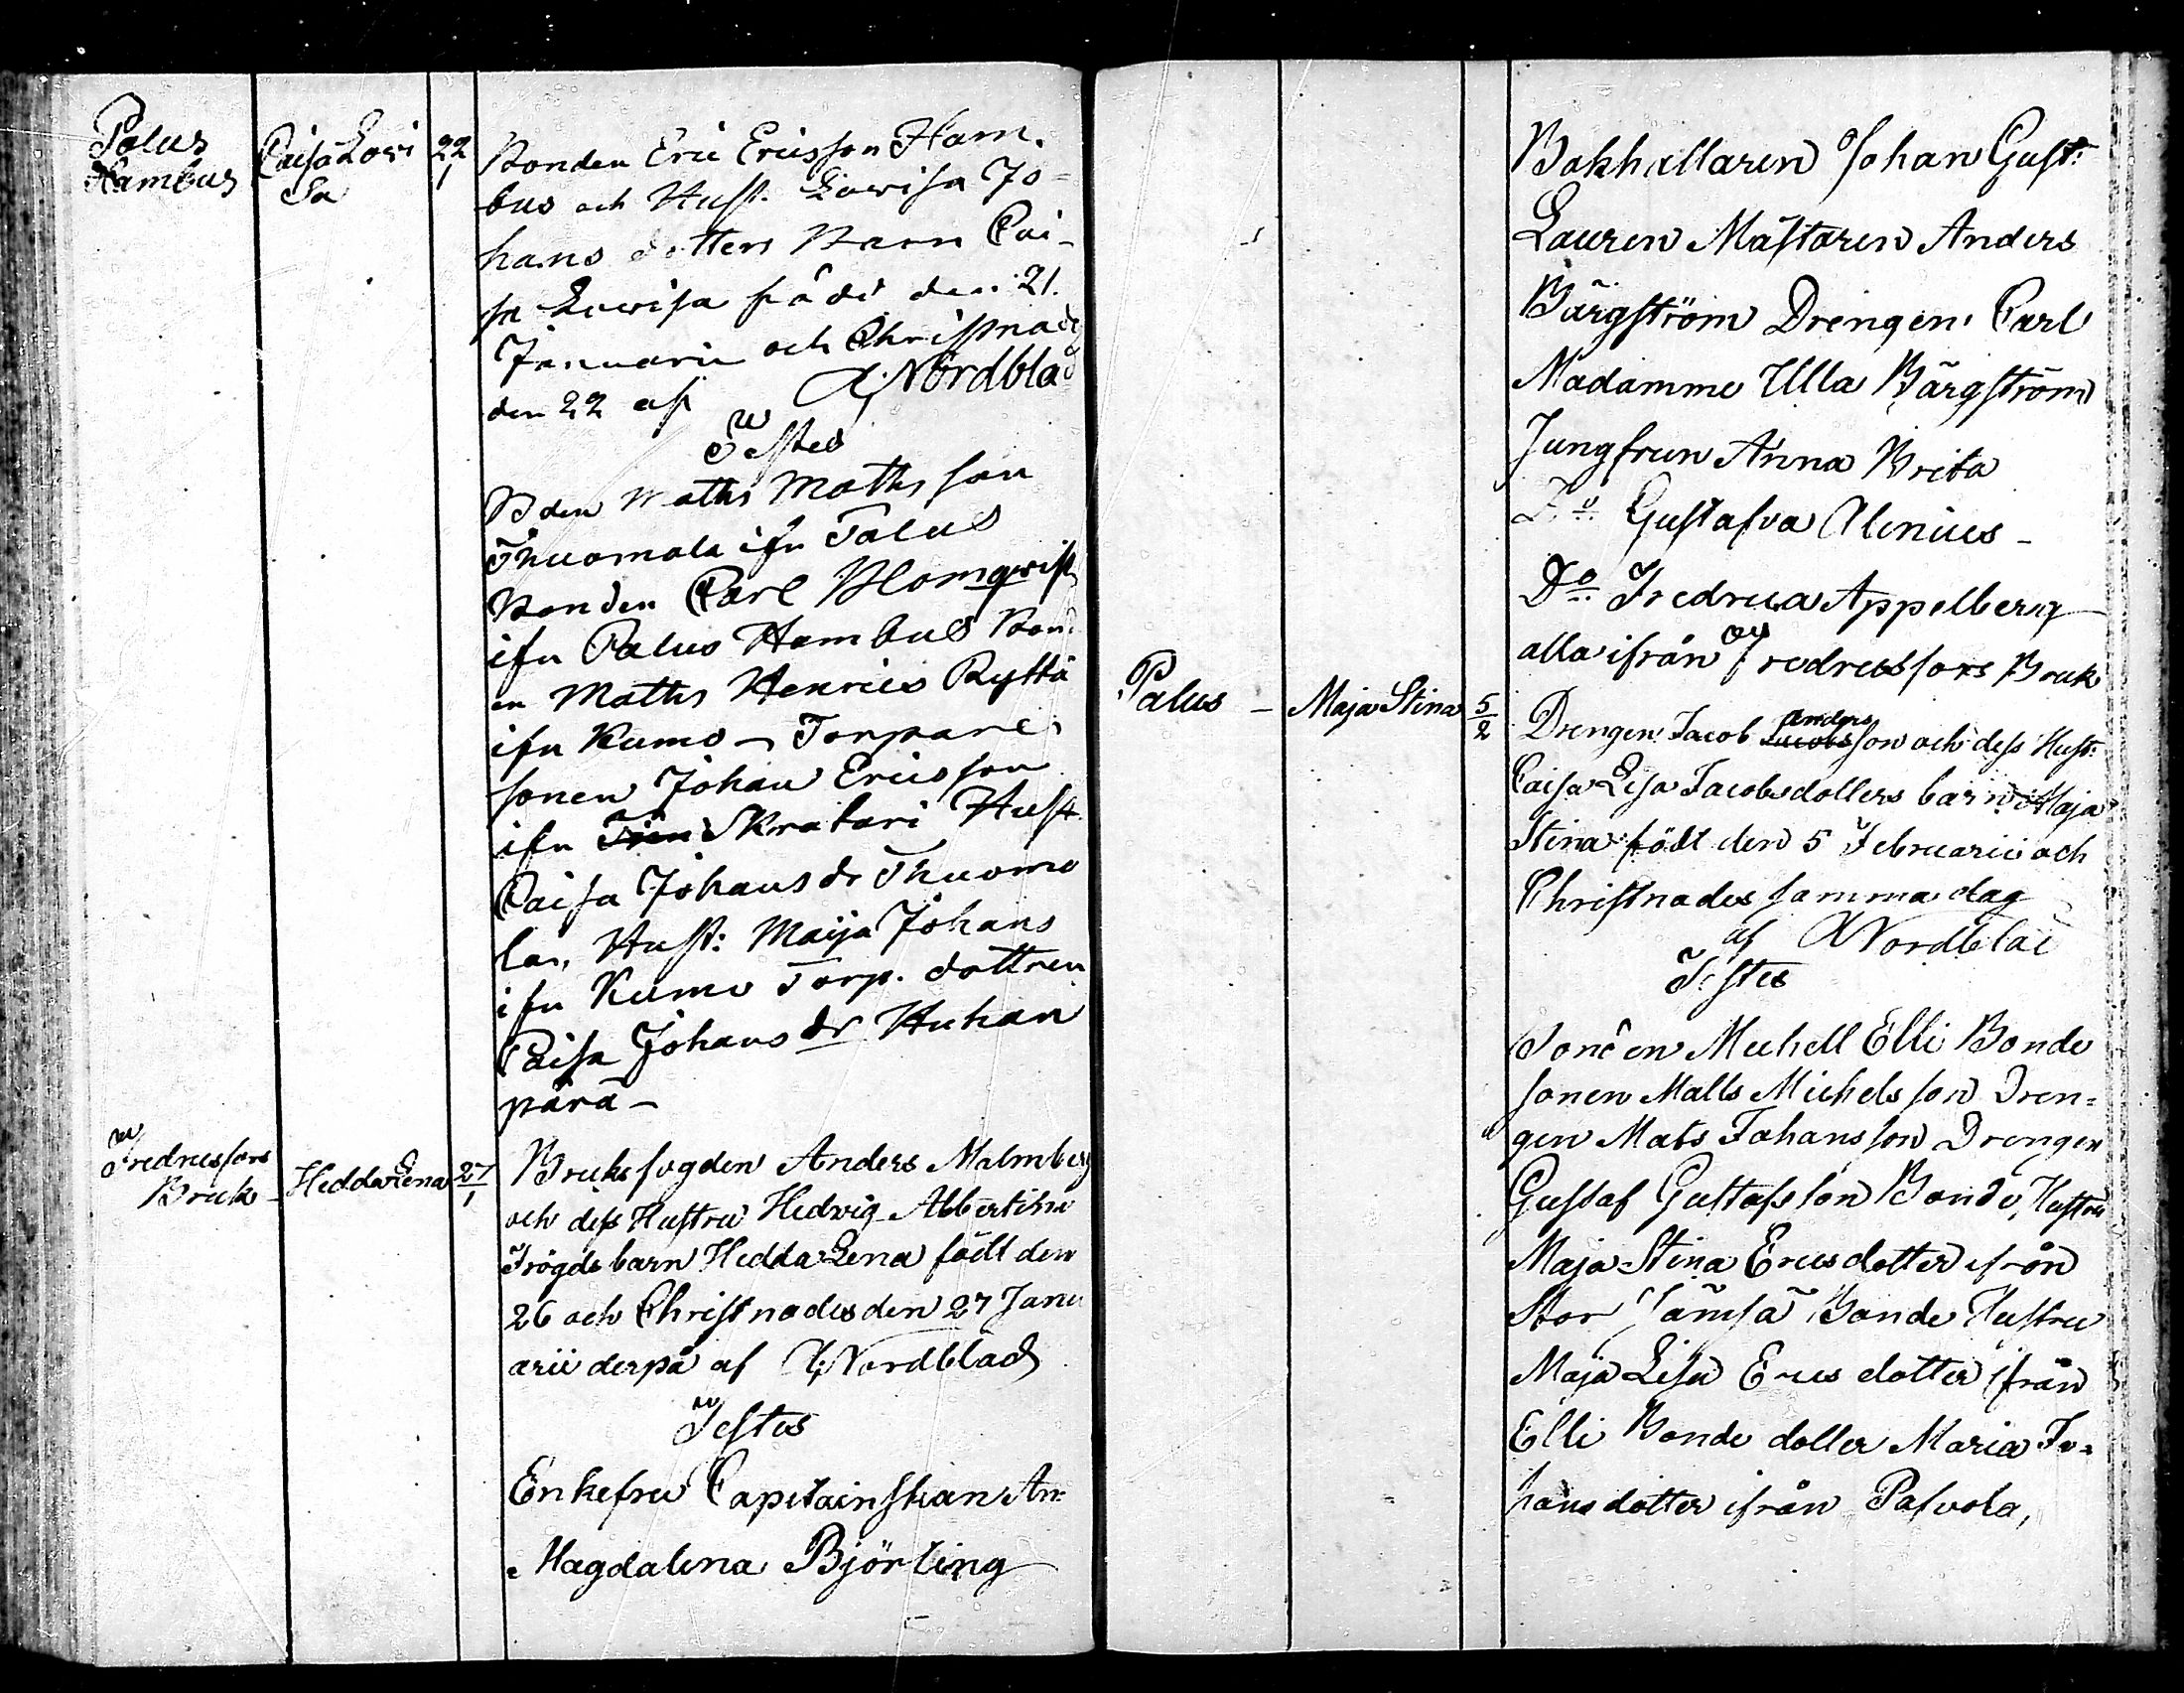 Palus
Hambus
Caisa Lovi
sa
22
1
Bonden Eric Ericsson Ham-
bus och Hust. Lovisa Jo=
hans dotters Barn Cai-
sa Lovisa född den 21.
Januarii och Christnades
den 22 af A, Nordblad
Testes
Bden Matts Matts son
Thuomala ifn Palus
Bonden Carl Blomqwist
ifn Palus Hambus Bond
en Matts Henrics Ryttä
ifn Kumo - Torpare
sonen Johan Ericsson
ifn Skratari Hust.
Caisa Johans dr Thuomo
la, Hust: Maija Johans
ifn Kumo Torp. dottren
Caisa Johans dr Huhan
pärä -
Fredricsfors
Bruk -
Hedda Lena
27
1
Bruksfogden Anders Malmberg
och dess Hustru Hedwig Albertine
Frögds barn Hedda Lena född den
26 och Christnades den 27 Janu
arii derpå af A, Nordblad
Testes
Enkefru Capitainskan An:
Magdalena Björling
Bokhållaren Johan Gust:
Lauren Mästaren Anders
Bärgström Drengen Carl
Madamme Ulla Bärgström
Jungfrun Anna Brita
Do: Gustafva Alenius -
Do: Fredrica Appelberg
alla ifrån Fredricsfors Bruk
Palus -
Maja Stina
5
2
Drengen Jacob Anders Jacobsson och dess Hust:
Caisa Lisa Jacobsdotters barn Maja
Stina född den 5 Februarii och
Christnades samma dag
af A Nordblad
Testes
Sonen Michell Elli Bonde
sonen Matts Michelsson Dren=
gen Mats Johansson Drengen
Gustaf Gustafsson Bonde, Hustru
Maja Stina Ericsdotter ifrån
Stor Jämsä Bonde Hustru
Maja Lisa Erics dotter ifrån
Elli Bonde dotter Maria Jo=
hans dotter ifrån Pafvola,